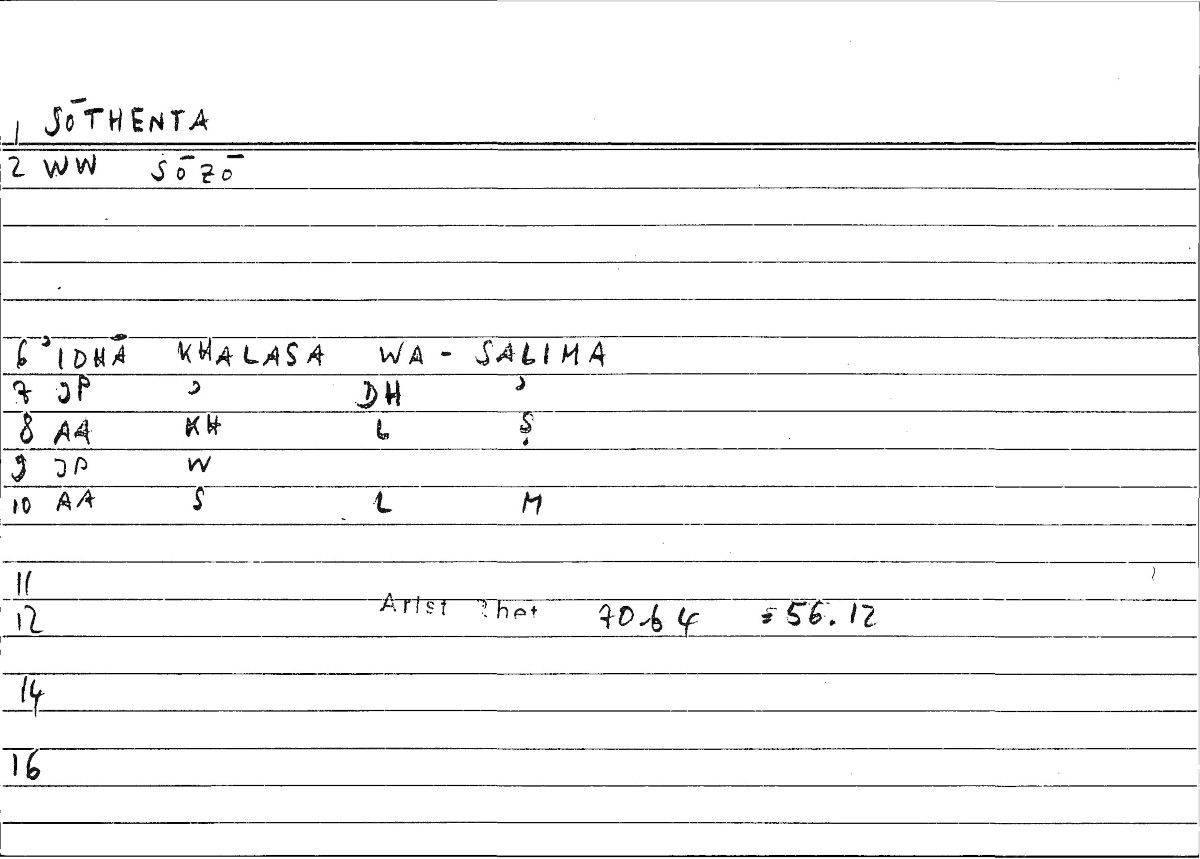 1 SŌTHENTA
2 WW SŌZŌ
6 ʾIDHĀ KHALASA WA - SALIMA
7 JP ʾ DH ʾ
8 AA KH L Ṣ
9 JP W
10 AA S L M
11
12 Arist Rhet 70.64 =56.12
14
16